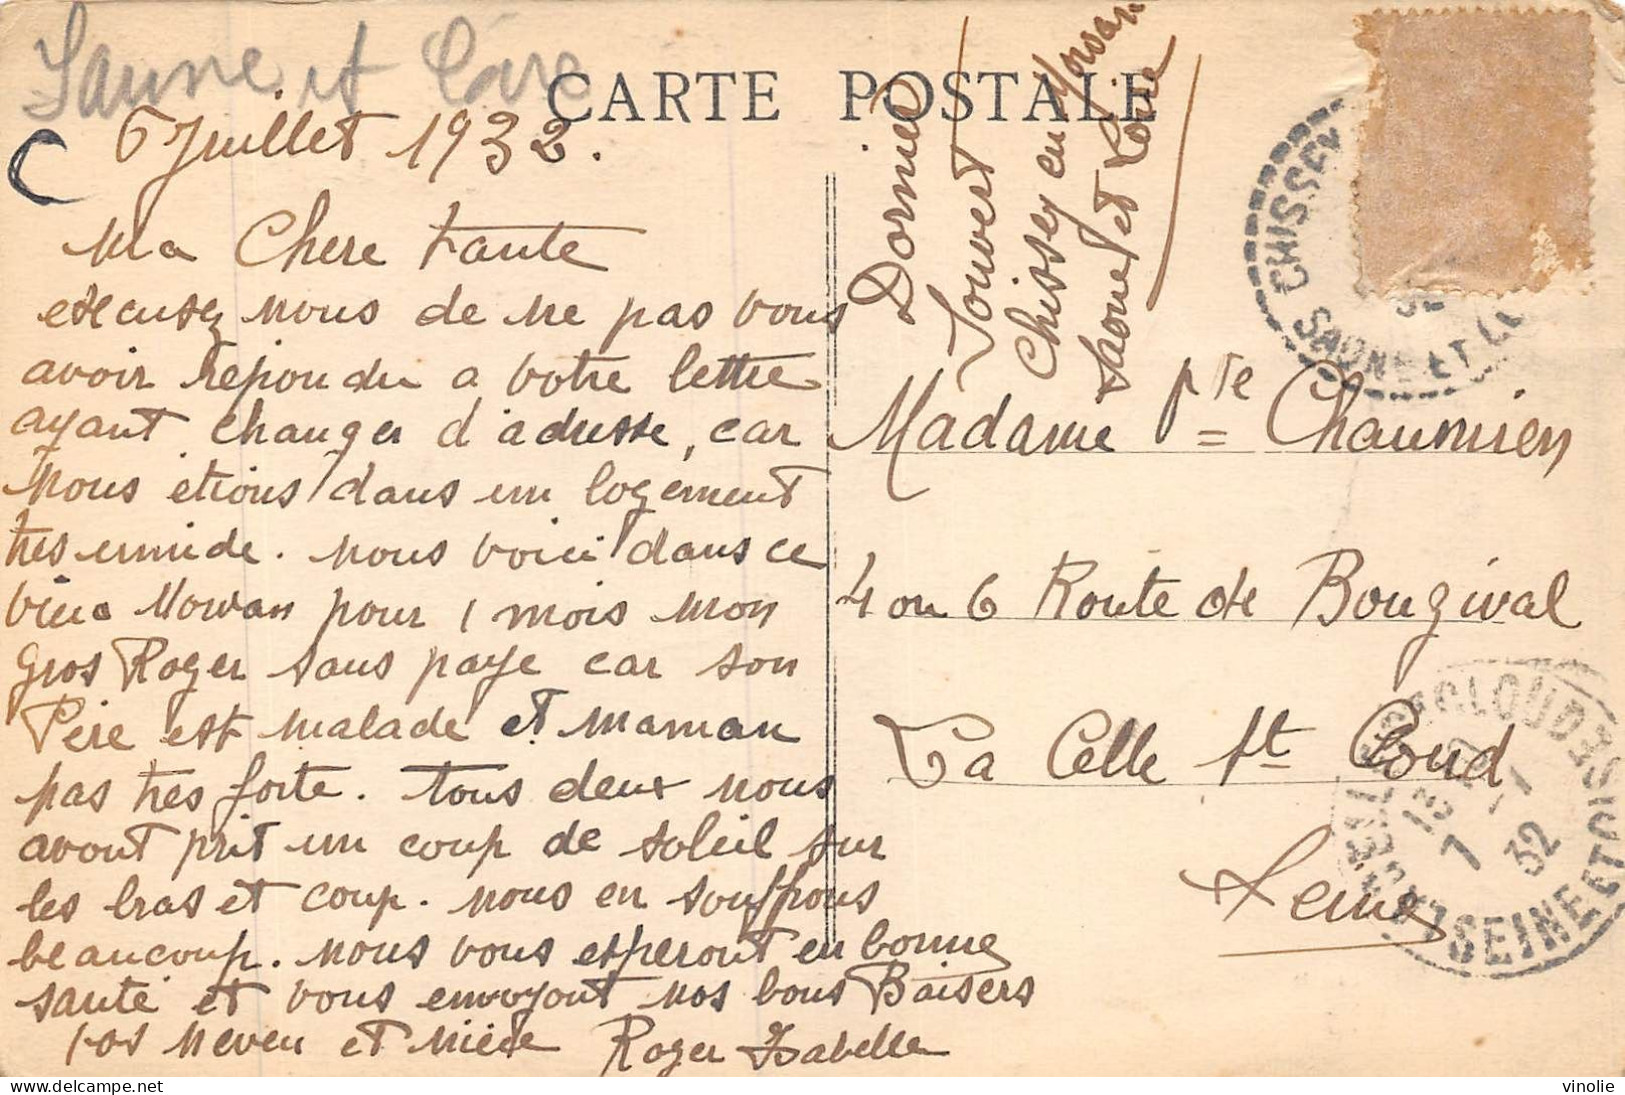 Saone et Loire
CARTE POSTALE
6 Juillet 1932.
Ma Chere tante
excusez nous de ne pas vous
avoir repondu a votre lettre
ayant changer d'adresse, car
nous etions dans un logement
tres umide. nous voici dans ce
vieux Morvan pour 1 mois mon
gros Roger sans paye car son
Père est malade et maman
pas tres forte. tous deux nous
avont prit un coup de soleil sur
les bras et coup. nous en souffrons
beaucoup. nous vous esperont en bonne
santé et vous envoyont nos bons Baisers
vos neveu et nièce Roger Isabelle
Dornier
Souvert
Chissey en Morvan
Saone et Loire
Madame pte = Chaumien
4 ou 6 Route de Bougival
La Celle St Cloud
Seine
CHISSEY
SAONE ET LOIRE
32
LA CELLE ST CLOUD
SEINE ET OISE
13
7
32
vinolie